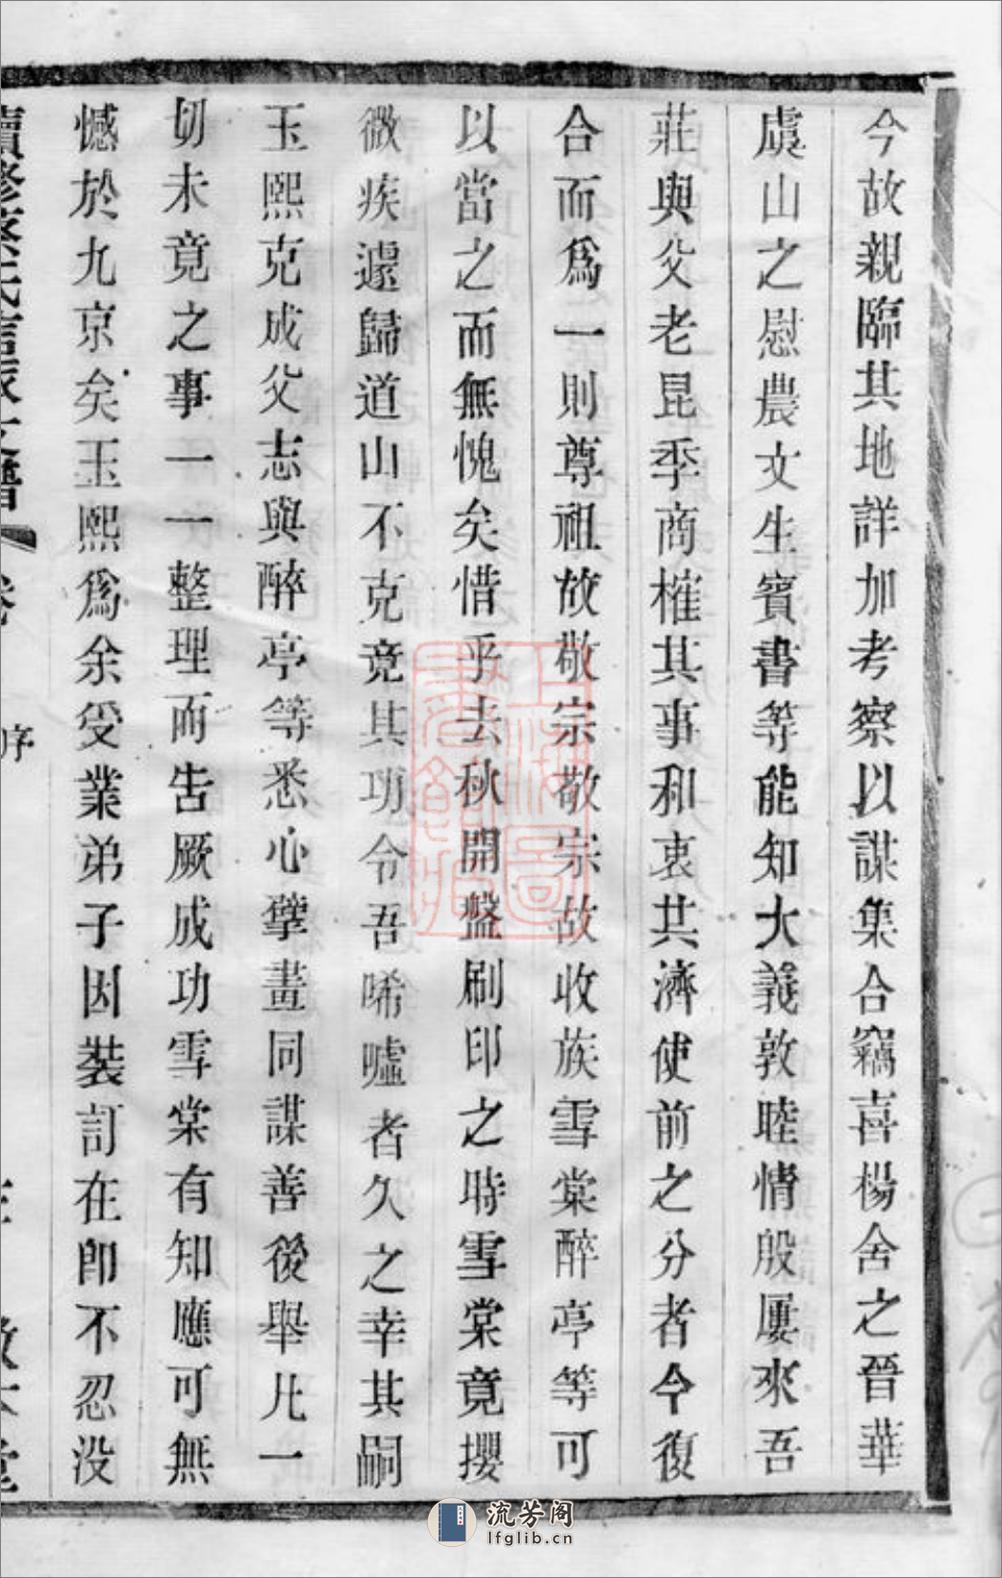 今故親臨其地詳加考察以謀集合竊喜楊舍之晉華
虞山之慰農文生賓書等能知大義敦睦情殷屢來吾
莊與父老昆季商榷其事和衷共濟使前之分者今復
合而爲一則尊祖故敬宗敬宗故收族雪棠醉亭等可
以當之而無愧矣惜乎去秋開盤刷印之時雪棠竟攖
微疾遽歸道山不克竟其功令吾唏噓者久之幸其嗣
玉熙克成父志與醉亭等悉心擘畫同謀善後舉凡一
切未竟之事一一整理而告厥成功雪棠有知應可無
憾於九京矣玉熙爲余受業弟子因裝訂在卽不忍没
序
上海圖
書館藏
流芳阁
lfglib.cn